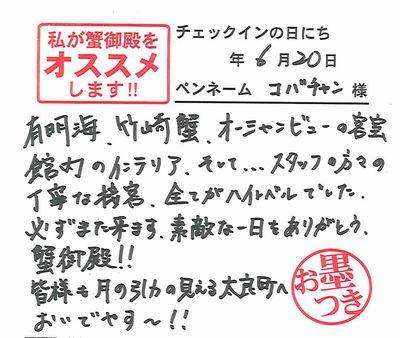 私が蟹御殿を
オススメ
します!!
チェックインの日にち
年 6月20日
ペンネーム コバチャン 様
有明海、竹崎蟹、オーシャンビューの客室
館内のインテリア、そして...スタッフの方々の
丁寧な接客、全てがハイレベルでした。
必ずまた来ます、素敵な一日をありがとう、
蟹御殿!!
皆様も月の引力の見える太良町へ
おいでやす〜!!
お墨つき